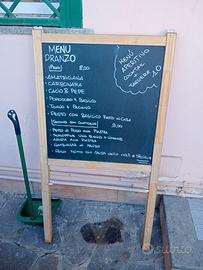 MENU
PRANZO
PRIMI 8,00
- AMATRICIANA
- CARBONARA
- CACIO & PEPE
- POMODORO E BASILICO
- TONNO E PACHINO
- PESTO CON BASILICO FATTO IN CASA
SECONDI CON CONTORNO 9,00
- PETTO DI POLLO ALLA PIASTRA
MENÙ
APERITIVO
COCKTAIL
+
TAGLIERE
10
subito.it